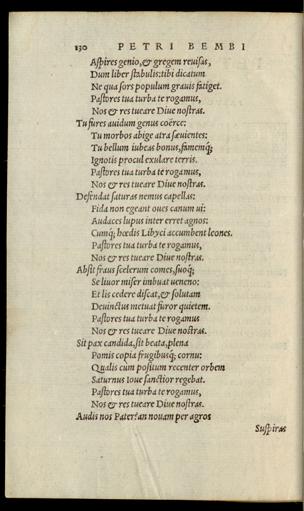 130 PETRI BEMBI
Aspires genio, & gregem reuisas,
Dum liber stabulis: tibi dicatum
Ne qua sors populum grauis fatiget.
Pastores tua turba te rogamus,
Nos & res tueare Diue nostras.
Tu fures auidum genus coërce:
Tu morbos abige atra sæuientes:
Tu bellum iubeas bonus, famemq;
Ignotis procul exulare terris.
Pastores tua turba te rogamus,
Nos & res tueare Diue nostras.
Defendat saturas nemus capellas:
Fida non egeant oues canum ui:
Audaces lupus inter erret agnos:
Cumq; hœdis Libyci accumbent leones.
Pastores tua turba te rogamus,
Nos & res tueare Diue nostras.
Absit fraus scelerum comes, suoq;
Se liuor miser imbuat ueneno:
Et lis cedere discat, & solutam
Deuinctus metuat furor quietem.
Pastores tua turba te rogamus
Nos & res tueare Diue nostras.
Sit pax candida, sit beata, plena
Pomis copia frugibusq; cornu:
Qualis cum positum recenter orbem
Saturnus Ioue sanctior regebat.
Pastores tua turba te rogamus,
Nos & res tueare Diue nostras.
Audis nos Pater? an nouam per agros
Suspiras